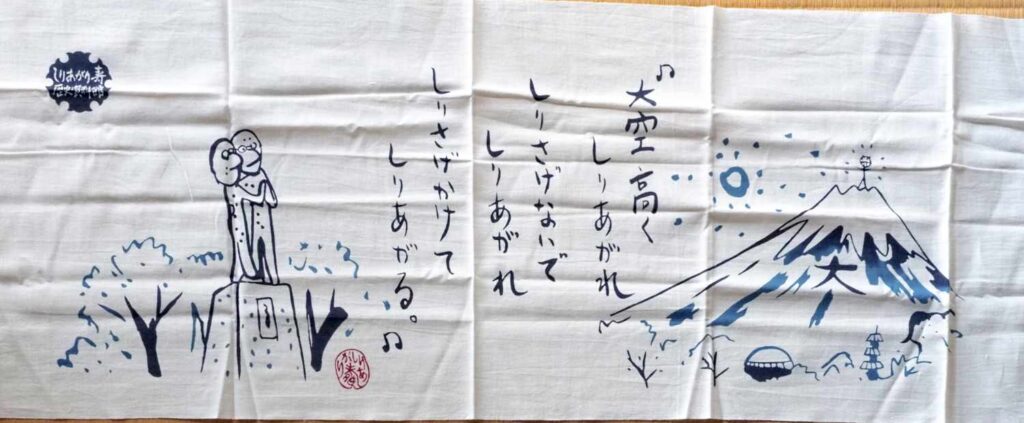 ♫大空高く
しりあがれ
しりさげないで
しりあがれ
しりさげかけて
しりあがる。♫
大
しりあがり寿
しりあがり寿